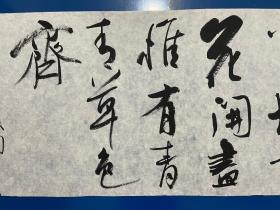 花開盡
惟有青
青草色
齊